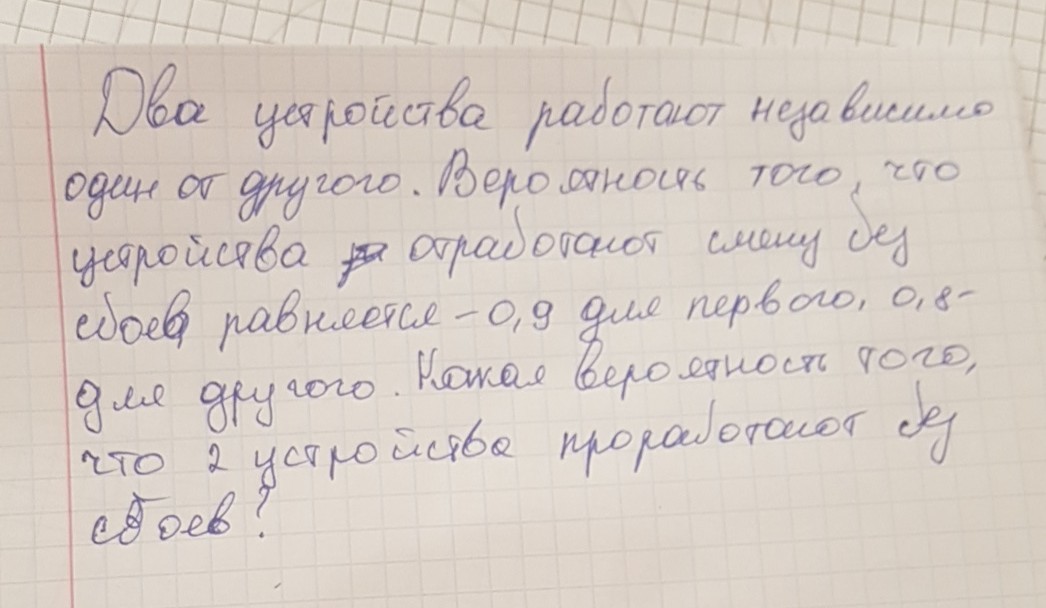 Два устройства работают независимо
один от другого. Вероятность того, что
устройства отработают смену без
сбоев равняется - 0,9 для первого, 0,8-
для другого. Какая вероятность того,
что 2 устройства проработают без
сбоев?